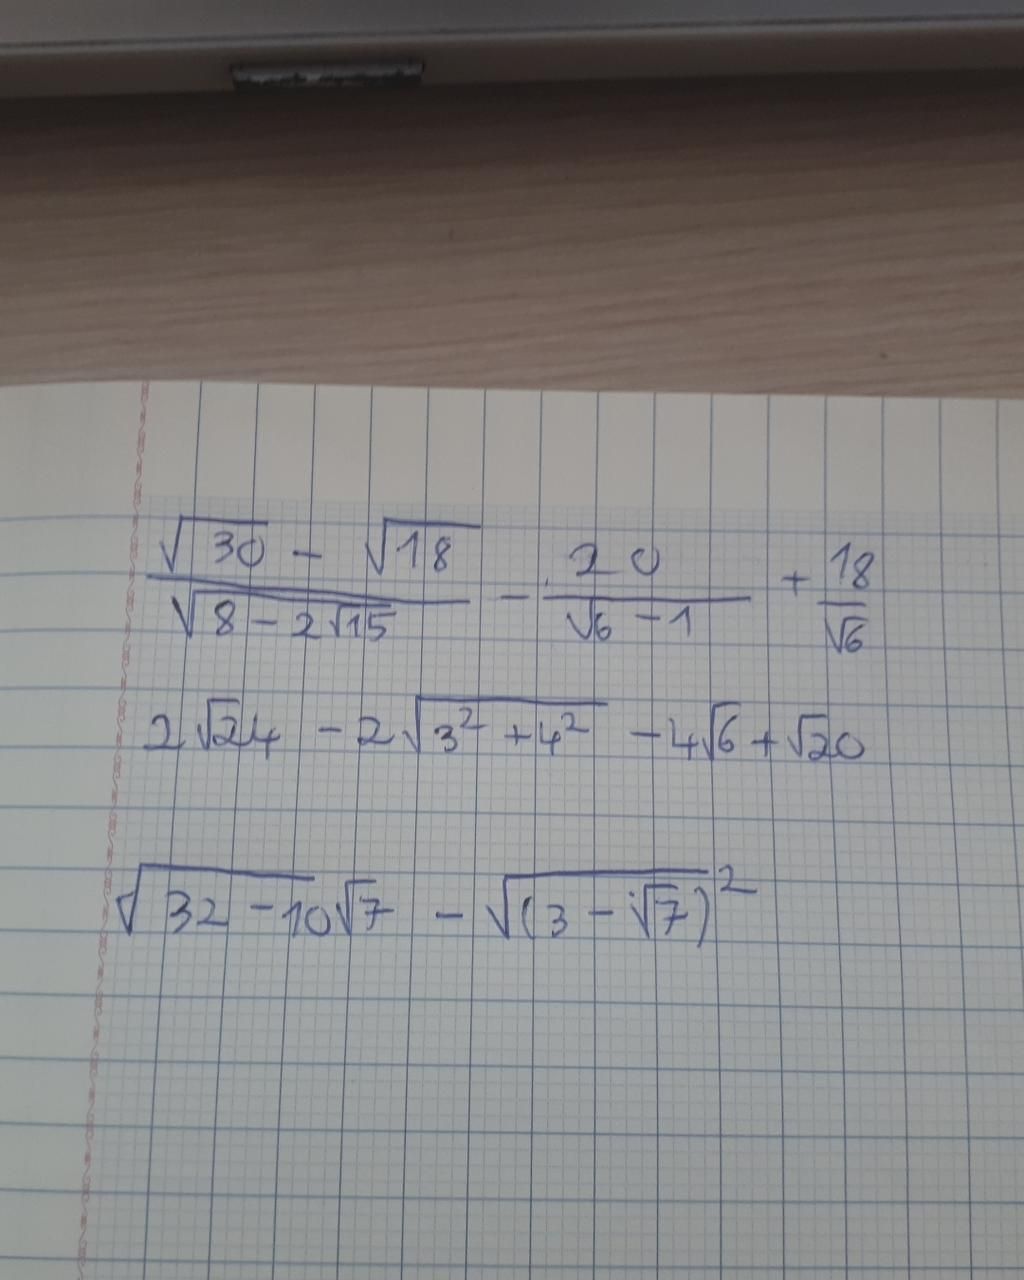 (√30 - √18)/√(8 - 2√15) - 20/(√6 - 1) + 18/√6
2√24 - 2√(3² + 4²) - 4√6 + √20
√(32 - 10√7) - √(3 - √7)²